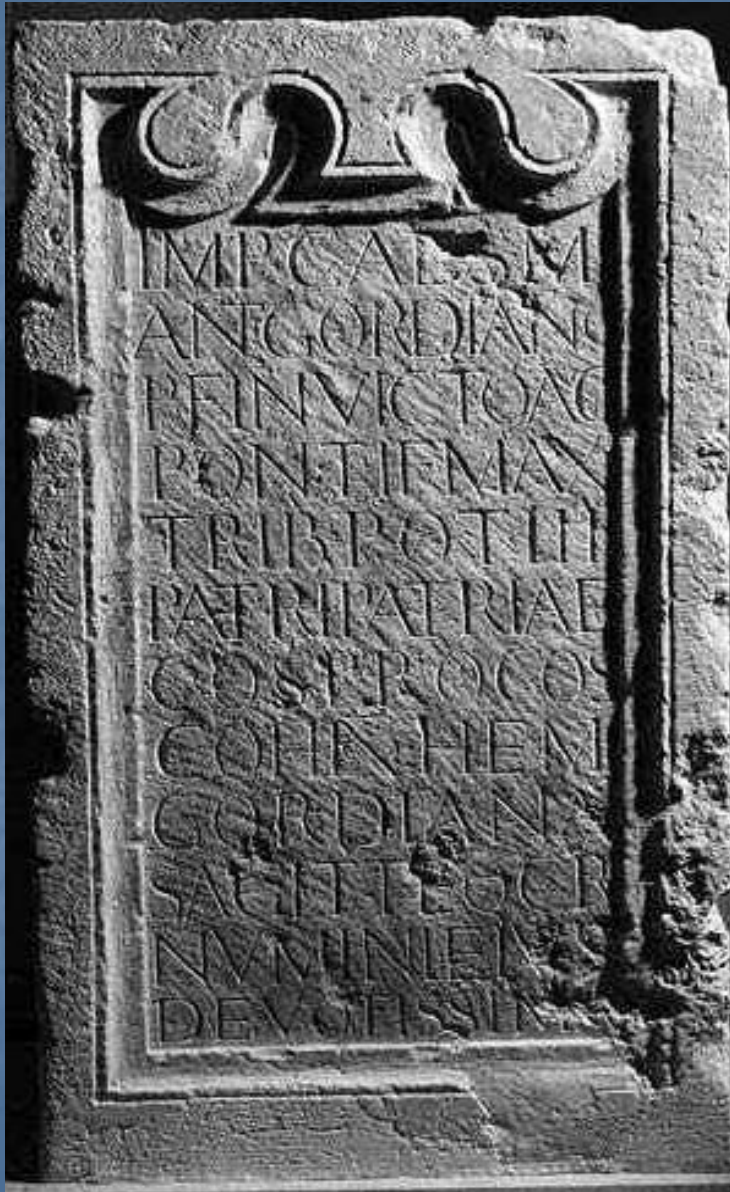 IMP CAES M
ANT GORDIANO
P F INVICTO AG
PONTIF MAX
TRIB POT III
PATRI PATRIAE
COS PROCOS
COH HEM
GORDIAN
SAGITT EQ C R
NVMINI
DEVOTISSIM